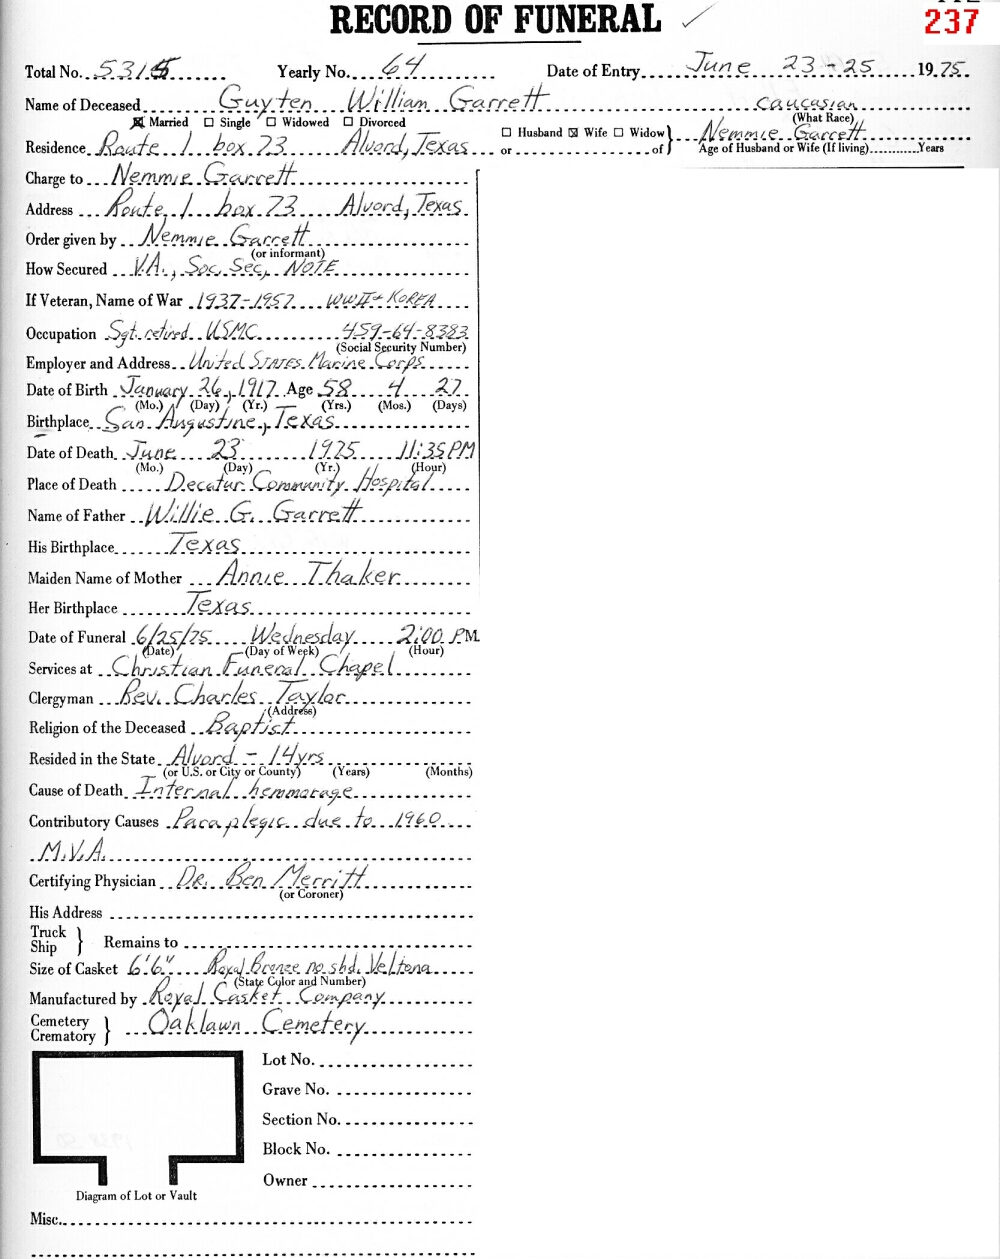 RECORD OF FUNERAL
237
Total No. 5315 Yearly No. 64 Date of Entry June 23-25 1975
Name of Deceased Guyten William Garrett caucasian
(What Race)
☒ Married ☐ Single ☐ Widowed ☐ Divorced
☐ Husband ☒ Wife ☐ Widow } Nemmie Garrett
Residence Route 1 box 73 Alvord, Texas or of Age of Husband or Wife (If living) Years
Charge to Nemmie Garrett
Address Route 1 box 73 Alvord, Texas
Order given by Nemmie Garrett
(or informant)
How Secured V.A., Soc. Sec, NOTE
If Veteran, Name of War 1937-1957 WWII + KOREA
Occupation Sgt. retired USMC 459-64-8383
(Social Security Number)
Employer and Address United States Marine Corps
Date of Birth January 26, 1917 Age 58 4 27
(Mo.) (Day) (Yr.) (Yrs.) (Mos.) (Days)
Birthplace San Angustine, Texas
Date of Death June 23 1975 11:35 PM
(Mo.) (Day) (Yr.) (Hour)
Place of Death Decatur Community Hospital
Name of Father Willie G. Garrett
His Birthplace Texas
Maiden Name of Mother Annie Thaker
Her Birthplace Texas
Date of Funeral 6/25/75 Wednesday 2:00 P.M.
(Date) (Day of Week) (Hour)
Services at Christian Funeral Chapel
Clergyman Rev. Charles Taylor
(Address)
Religion of the Deceased Baptist
Resided in the State Alvord - 14 yrs
(or U.S. or City or County) (Years) (Months)
Cause of Death Internal hemmorage
Contributory Causes Paraplegic due to 1960
M.V.A.
Certifying Physician DR. Ben Merritt
(or Coroner)
His Address
Truck
Ship } Remains to
Size of Casket 6'6" Royal Bronze no shd. Veltona
(State Color and Number)
Manufactured by Royal Casket Company
Cemetery
Crematory } Oaklawn Cemetery
Lot No.
Grave No.
Section No.
Block No.
Owner
Diagram of Lot or Vault
Misc.